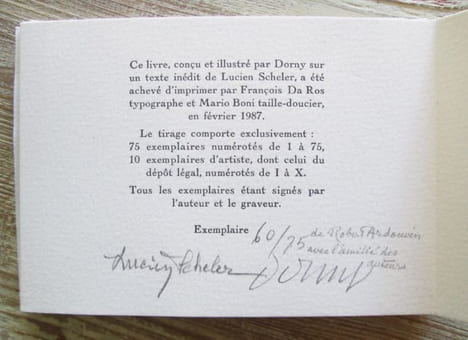 Ce livre, conçu et illustré par Dorny sur
un texte inédit de Lucien Scheler, a été
achevé d'imprimer par François Da Ros
typographe et Mario Boni taille-doucier,
en février 1987.
Le tirage comporte exclusivement :
75 exemplaires numérotés de 1 à 75,
10 exemplaires d'artiste, dont celui du
dépôt légal, numérotés de I à X.
Tous les exemplaires étant signés par
l'auteur et le graveur.
Exemplaire 60/75 de Robert Ardouvin
avec l'amitié des
auteurs
Lucien Scheler Dorny